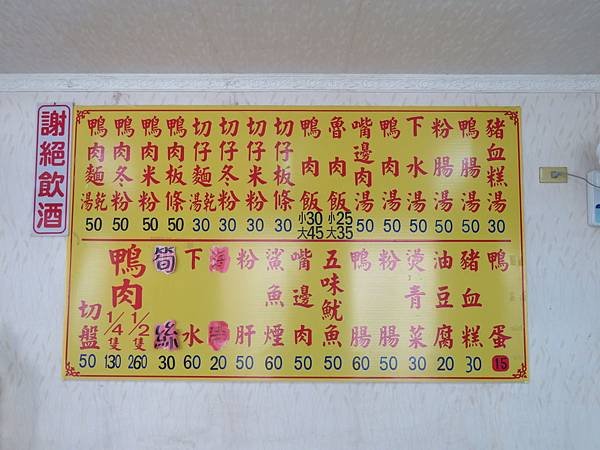 謝絕飲酒
鴨肉麵 湯乾 50
鴨肉冬粉 50
鴨肉米粉 50
鴨肉板條 50
切仔麵 湯乾 30
切仔冬粉 30
切仔米粉 30
切仔板條 30
鴨肉飯 小30 大45
魯肉飯 小25 大35
嘴邊肉湯 50
鴨肉湯 50
下水湯 50
粉腸湯 50
鴨腸湯 50
豬血糕湯 30
鴨肉
切盤 50
1/4隻 130
1/2隻 260
筍絲 30
下水 60
20
粉肝 50
鯊魚煙 60
嘴邊肉 50
五味魷魚 50
鴨腸 60
粉腸 50
燙青菜 30
油豆腐 20
豬血糕 30
鴨蛋 15